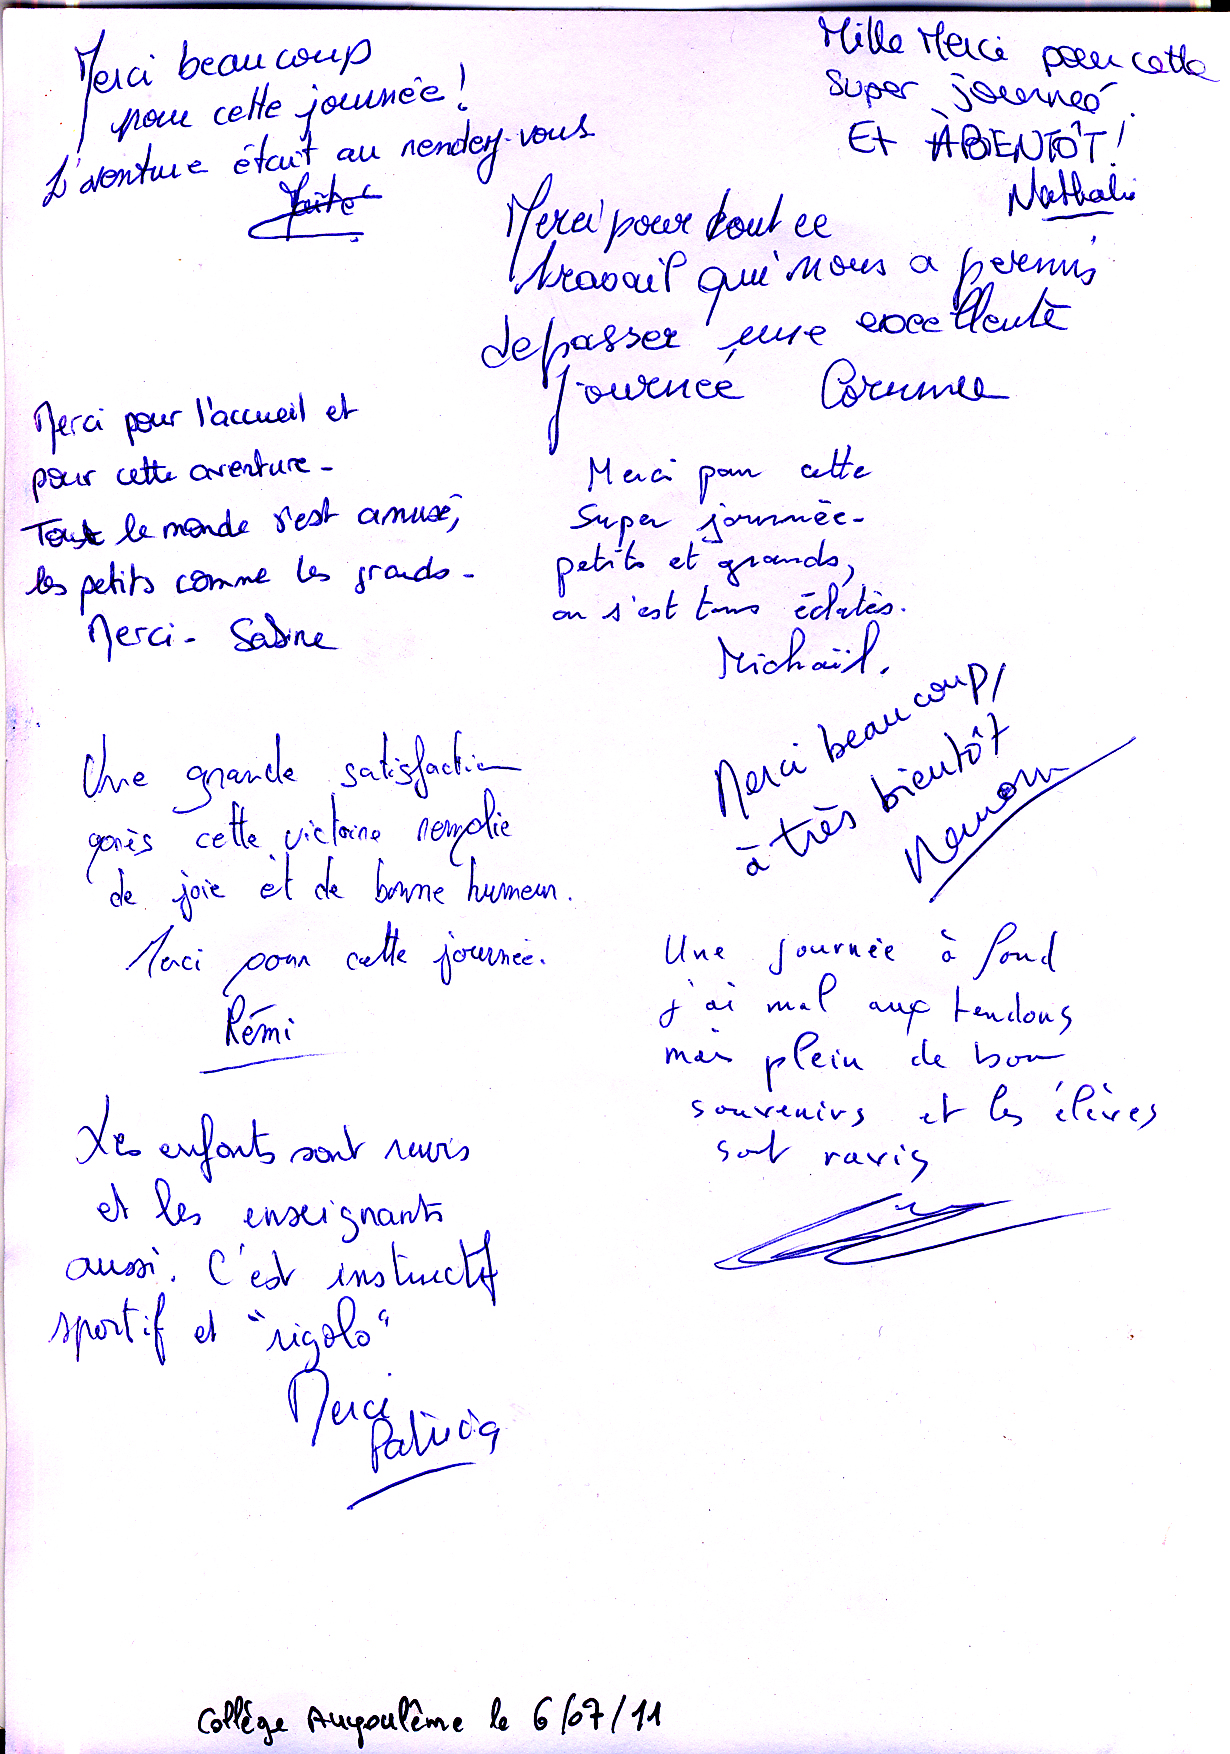 Merci beaucoup
pour cette journée !
L'aventure était au rendez-vous
Mille Merci pour cette
super journeé
Et À BIENTÔT !
Nathalie
Merci pour tout ce
travail qui nous a permis
de passer une excellente
journeé Corinne
Merci pour l'accueil et
pour cette aventure -
Tout le monde s'est amusé,
les petits comme les grands -
Merci - Sabine
Merci pour cette
super journnée -
petits et grands,
on s'est tous éclatés.
Michaïl.
Merci beaucoup,
à très bientôt
Une grande satisfaction
après cette victoire remplie
de joie et de bonne humeur.
Merci pour cette journée.
Rémi
Une journée à fond
j'ai mal aux tendons
mais plein de bon
souvenirs et les élèves
sont ravis
Les enfants sont ravis
et les enseignants
aussi. C'est instructif
sportif et "rigolo"
Merci
Patricia
Collège Angoulême le 6/07/11